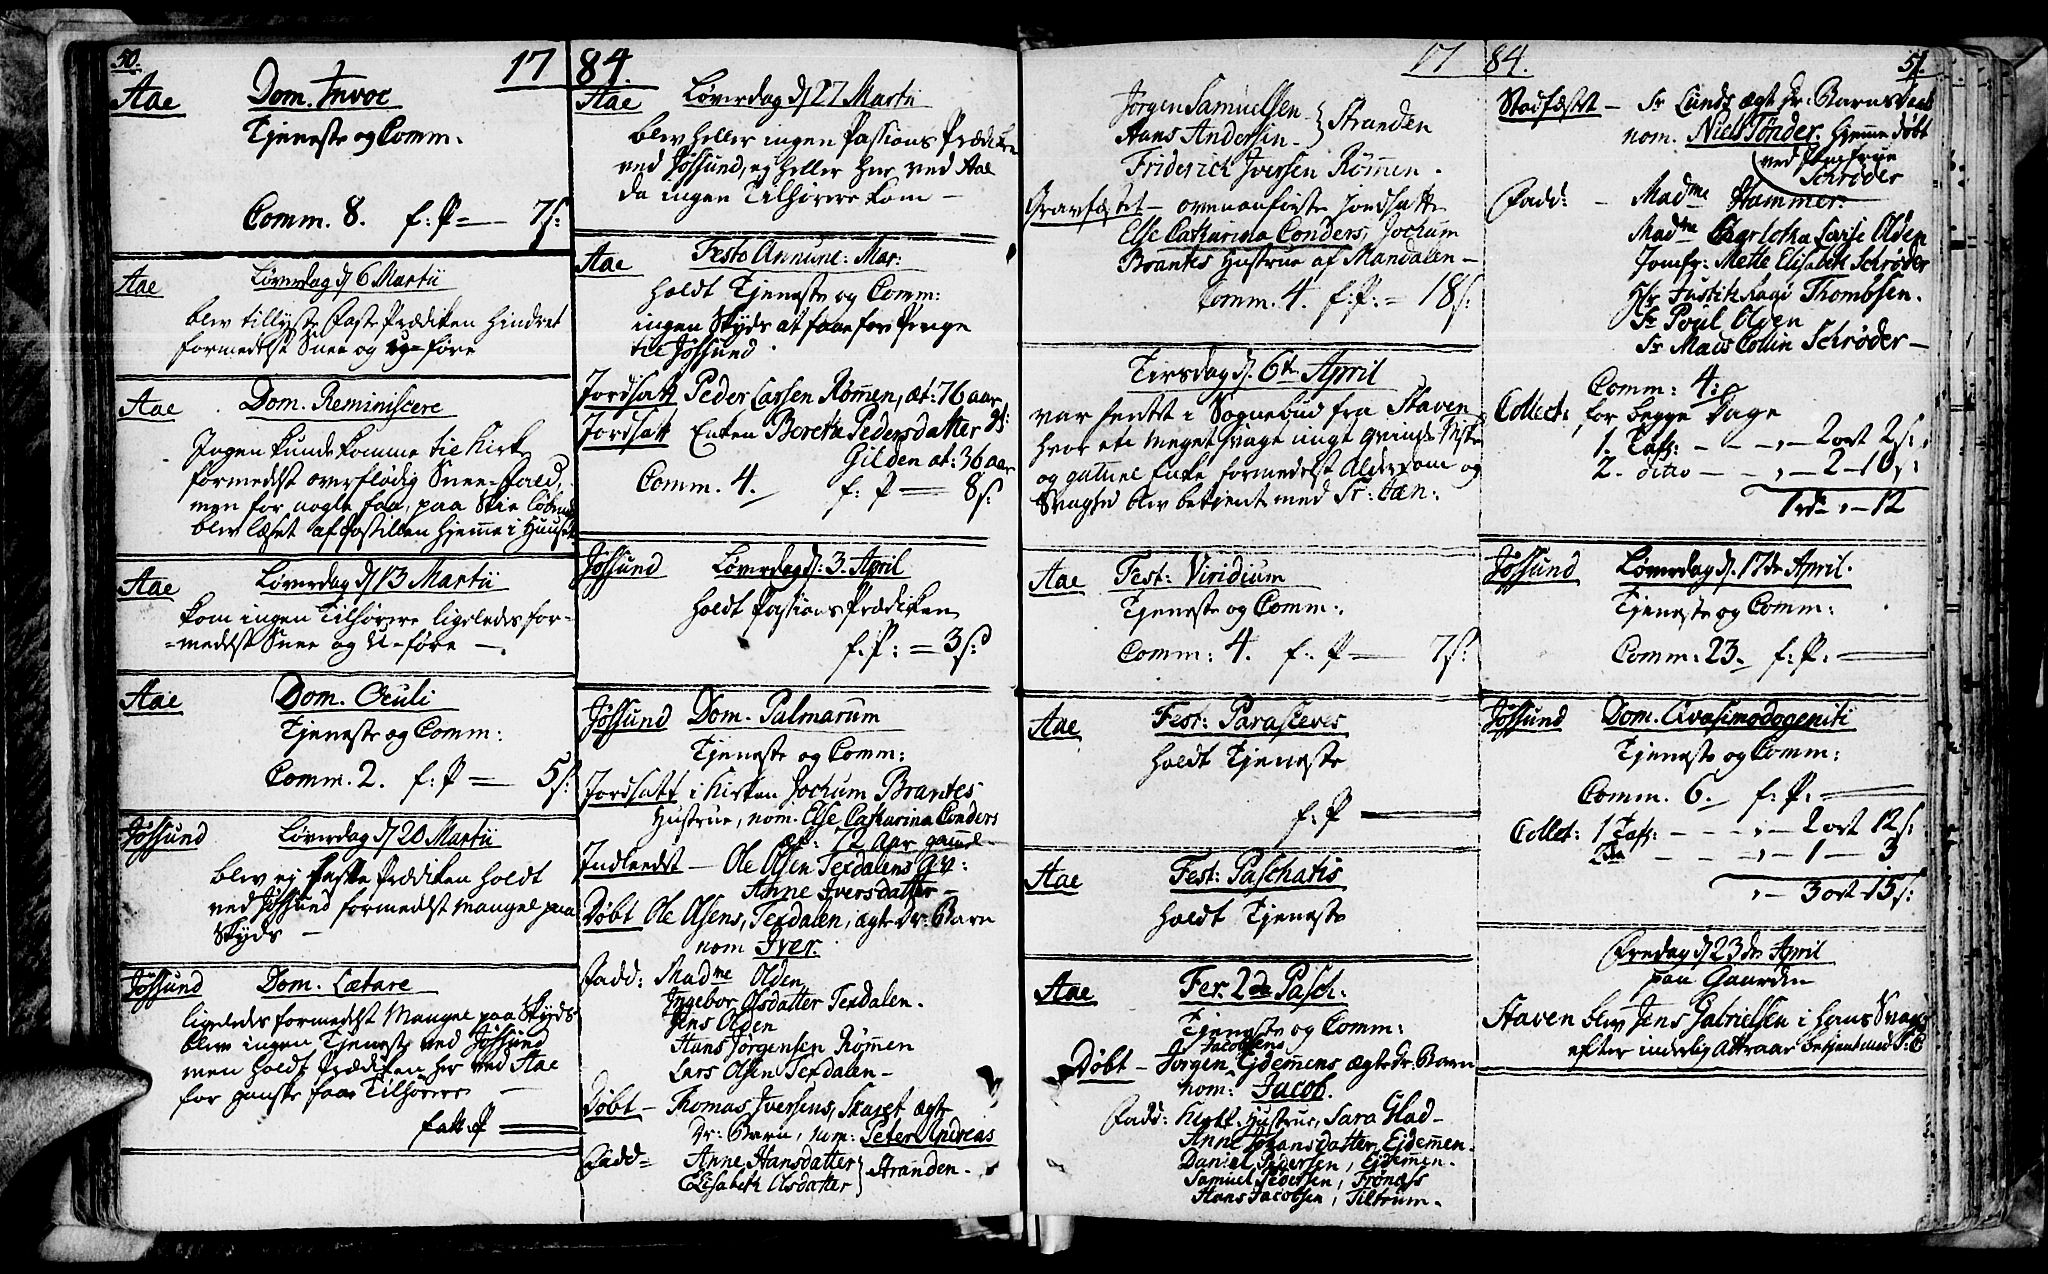 50.
17 84.
Aae Dom. Invoc
Tjeneste og Comm.
Comm. 8. f: P — 7 s:
Aae Løverdag d. 6 Martii
blev tillyste Faste Prædiken hindret
formedelst Snee og u-føre
Aae Dom. Reminiscere
Ingen kunde komme til Kirke
formedelst overflødig Snee-Fald,
men for nogle faa, paa Skie
blev læset af Postillen hjemme i Huuset
Aae Løverdag d. 13 Martii
kom ingen Tilhørere ligeledes for-
-medelst Snee og U-føre —
Aae Dom. Oculi
Tjeneste og Comm:
Comm. 2. f: P = 5 s:
Jössund Løverdag d. 20 Martii
blev ej Faste Prædiken holdt
ved Jössund formedelst Mangel paa
Skyds —
Jössund Dom. Lætare
ligeledes formedelst Mangel paa Skyds
blev ingen Tjeneste ved Jössund
men holdt Prædiken her ved Aae
for ganske faae Tilhørere —
Aae Løverdag d. 27 Martii
blev heller ingen Passions Prædiken
ved Jössund, ej heller her ved Aae
da ingen Tilhørere kom —
Aae Festo Annunc: Mar:
holdt Tjeneste og Comm:
ingen Skyds at faae for Penge
til Jössund.
Jordsatt Peder Larsen Rømen, æt: 76 aar
Jordsatt Enken Beretha Pedersdatter
Gilden æt: 36 aar
Comm. 4. f: P = 8 s:
Jössund Løverdag d: 3. April
holdt Passions Prædiken
f: P: = 3 s:
Jössund Dom. Palmarum
Tjeneste og Comm:
Jordsatt i Kirken Jochum Brantes
Hustrue, nom. Else Catharina Conders
æt: 72 Aar gamel
Indleedt — Ole Olsen Texdalens Qv:
Anne Iversdatter —
Døbt Ole Olsens, Texdalen, ægte Dr: Barn
nom Iver.
Fadd: Madme Olden
Ingebor Olsdatter Texdalen.
Jens Olden
Hans Jørgensen Rømen
Lars Olsen Texdalen —
Døbt — Thomas Iversens, Skaret ægte
Dr: Barn, nom: Peter Andreas
Fadd = Anne Hansdatter
Elisabeth Olsdatter } Stranden.
17 84. 51.
Jørgen Samuelsen
Hans Andersen — } Stranden
Friderich Iversen Rømen.
Gravfæstet — ovenanførte Jordsatte
Else Catharina Conders, Jochum
Brantes Hustrue af Mandalen —
Comm. 4. f: P: = 18 s:
Tirsdag d. 6te April
var hentet i Sognebud fra Staven,
hvor et meget svagt ungt qvinde
og gammel Enke formedelst Alderdom og
Svaghed blev betjent med Sr: Cæn:
Aae Fest: Viridium
Tjeneste og Comm:
Comm: 4. f: P — 7 s:
Aae Fest: Parasceves
holdt Tjeneste
f: P —
Aae Fest: Paschatis
holdt Tjeneste
Aae Fer. 2da Pasch:
Tjeneste og Comm:
Jacobsens
Døbt — Jørgen Ejdemens ægte Dr. Barn
nom: Jacob.
Fadd: Hustrue, Sara Glad —
Anne Johansdatter, Ejdemen.
Daniel Pedersen, Ejdemen.
Samuel Pedersen, Frønæss
Hans Jacobsen, Tiltrum.
Stadfæstet — Sr Lunds ægt Dr: Barns Daab
nom. Niels Tönder. Hjemme døbt
ved Jomfrue
Schrøder
Fadd: — Madme Hammer.
Madme Charlotha Levise Olden
Jomfr: Mette Elisabeth Schrøder
Hr Justitz Raad Thombsen.
Sr Poul Olden
Sr Mads Collin Schrøder —
Comm: 4:
Collect: for begge Dage
1. Tafl: — — — 2 ort 2 s:
2. ditto — — — 2 — 10 s:
1 rd — 12
Jössund Løverdag d. 17de April.
Tjeneste og Comm:
Comm: 23. f: P: —
Jössund Dom. Qvasimodogeniti
Tjeneste og Comm:
Comm. 6. f: P: —
Collet: 1 Tafl: — — — 2 ort 12 s:
2da — — — 1 — 3
3 ort 15 s:
Fredag d. 23de April
paa Gaarden
Staven blev Jens Gabrielsen i hans Svaghed
efter inderlig Attraae betjent med S: C